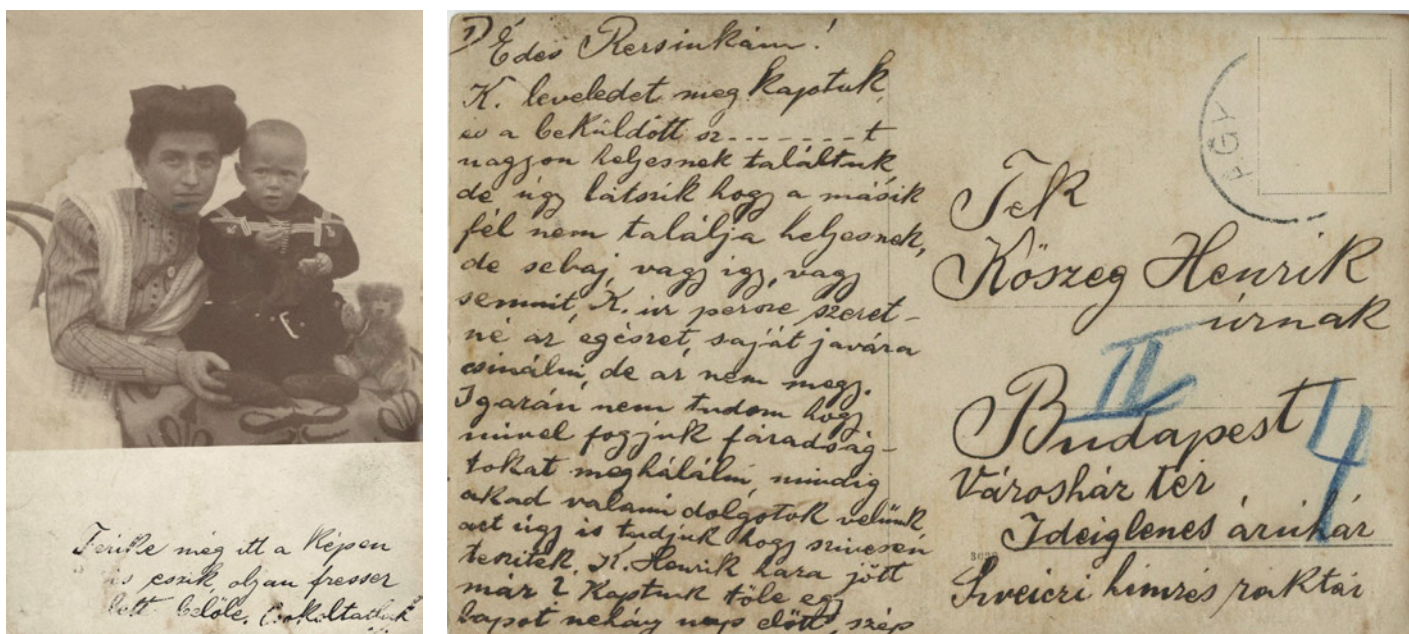 Terike még itt a Képen
is eszik, oljan fresser
lett belőle. Csokoltatluk
1)
Édes Rersinkám!
K. leveledet megkaptuk,
és a beküldött sz-------t
nagyon heljesnek találtuk,
de úgy látszik hogy a másik
fél nem találja heljesnek,
de sebaj, vagy igy, vagy
semmit, K. úr persze szeret-
né az egészet, saját javára
csinálni, de az nem megy.
Igazán nem tudom hogy
mivel fogjuk fáradság-
tokat meghálálni, mindig
akad valami dolgotok velünk
azt úgy is tudjuk hogy szivesen
teszitek. K. Henrik haza jött
már? Kaptunk tőle egy
lapot nehány nap előtt, szép
Tek
Kőszeg Henrik
úrnak
IV
Budapest
4
Városház tér
Ideiglenes áruház
Sveiczi himzés raktár